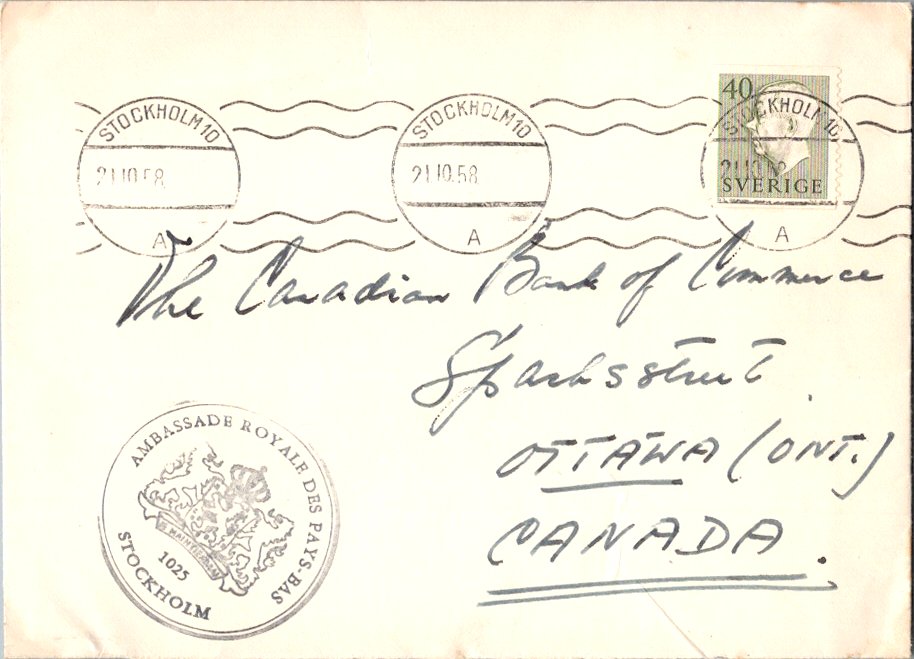 STOCKHOLM 10
21.10.58
A
STOCKHOLM 10
21.10.58
A
40
SVERIGE
STOCKHOLM 10
21.10.58
A
The Canadian Bank of Commerce
Sparksstreet
OTTAWA (ONT.)
CANADA.
AMBASSADE ROYALE DES PAYS-BAS
MAINTIENDRAI
1025
STOCKHOLM